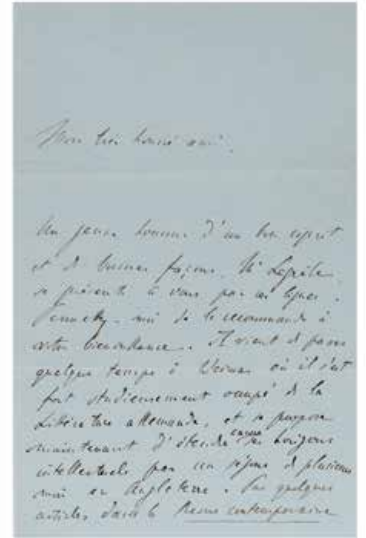 Mon très honoré ami,
Un jeune homme d'un bon esprit
et de bonnes façons, Mr
se présente à vous par ces lignes.
Permettez-moi de le recommander à
votre bienveillance. Il vient de passer
quelque temps à Weimar où il s'est
fort studieusement occupé de la
Littérature allemande, et se propose
maintenant d'étendre encore ses horizons
intellectuels par un séjour de plusieurs
mois en Angleterre. Par quelques
articles dans la Revue contemporaine